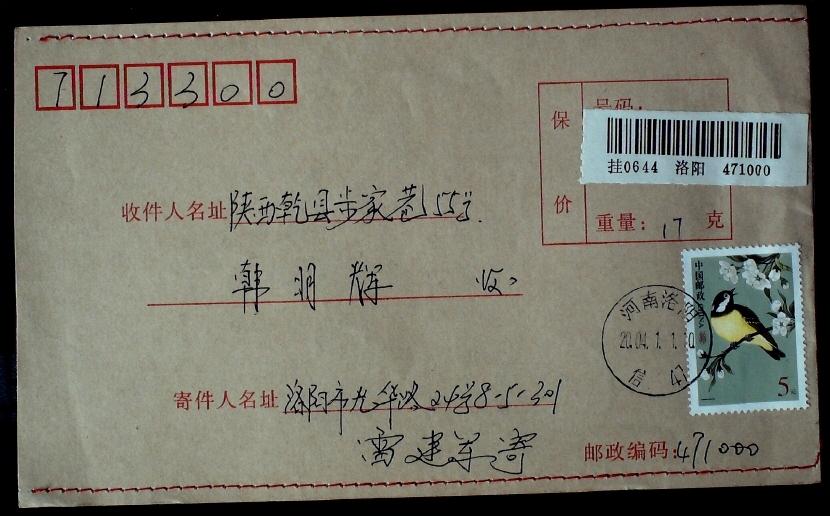 713300
保价
号码:
挂0644 洛阳 471000
重量: 17 克
收件人名址 陕西乾县步家巷55号
韩明辉 收
中国邮政 CHINA
5元
河南洛阳
2004.1.1.10
信 47
寄件人名址 洛阳市九华路24号8-5-301
雷建军寄
邮政编码: 471000